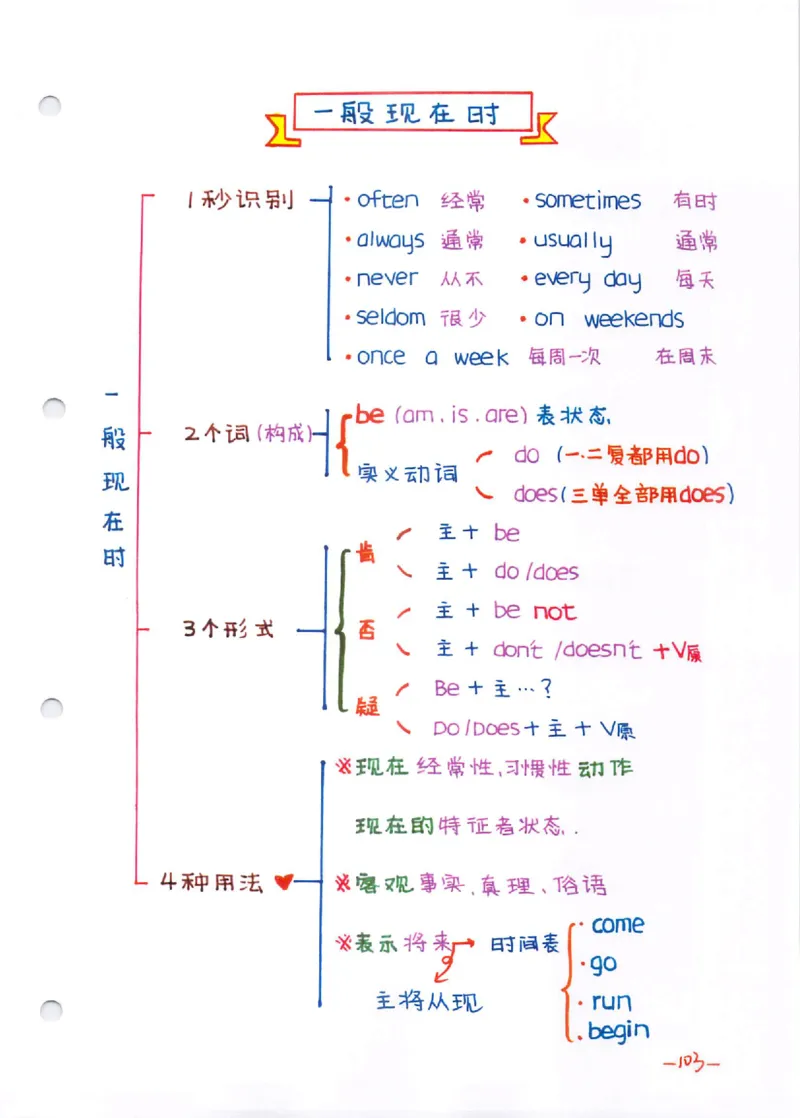 一般现在时
一般现在时
1秒识别
·often 经常 ·sometimes 有时
·always 通常 ·usually 通常
·never 从不 ·every day 每天
·seldom 很少 ·on weekends
·once a week 每周一次 在周末
2个词(构成)
be (am.is.are) 表状态
实义动词
do (一.二复都用do)
does(三单全部用does)
3个形式
肯
主+ be
主+ do/does
否
主+ be not
主+ don't/doesn't +V原
疑
Be+主…?
Do/Does+主+V原
4种用法
※现在经常性、习惯性动作
现在的特征者状态.
※客观事实、真理、俗语
※表示将来 → 时间表
·come
·go
·run
·begin
主将从现
-103-